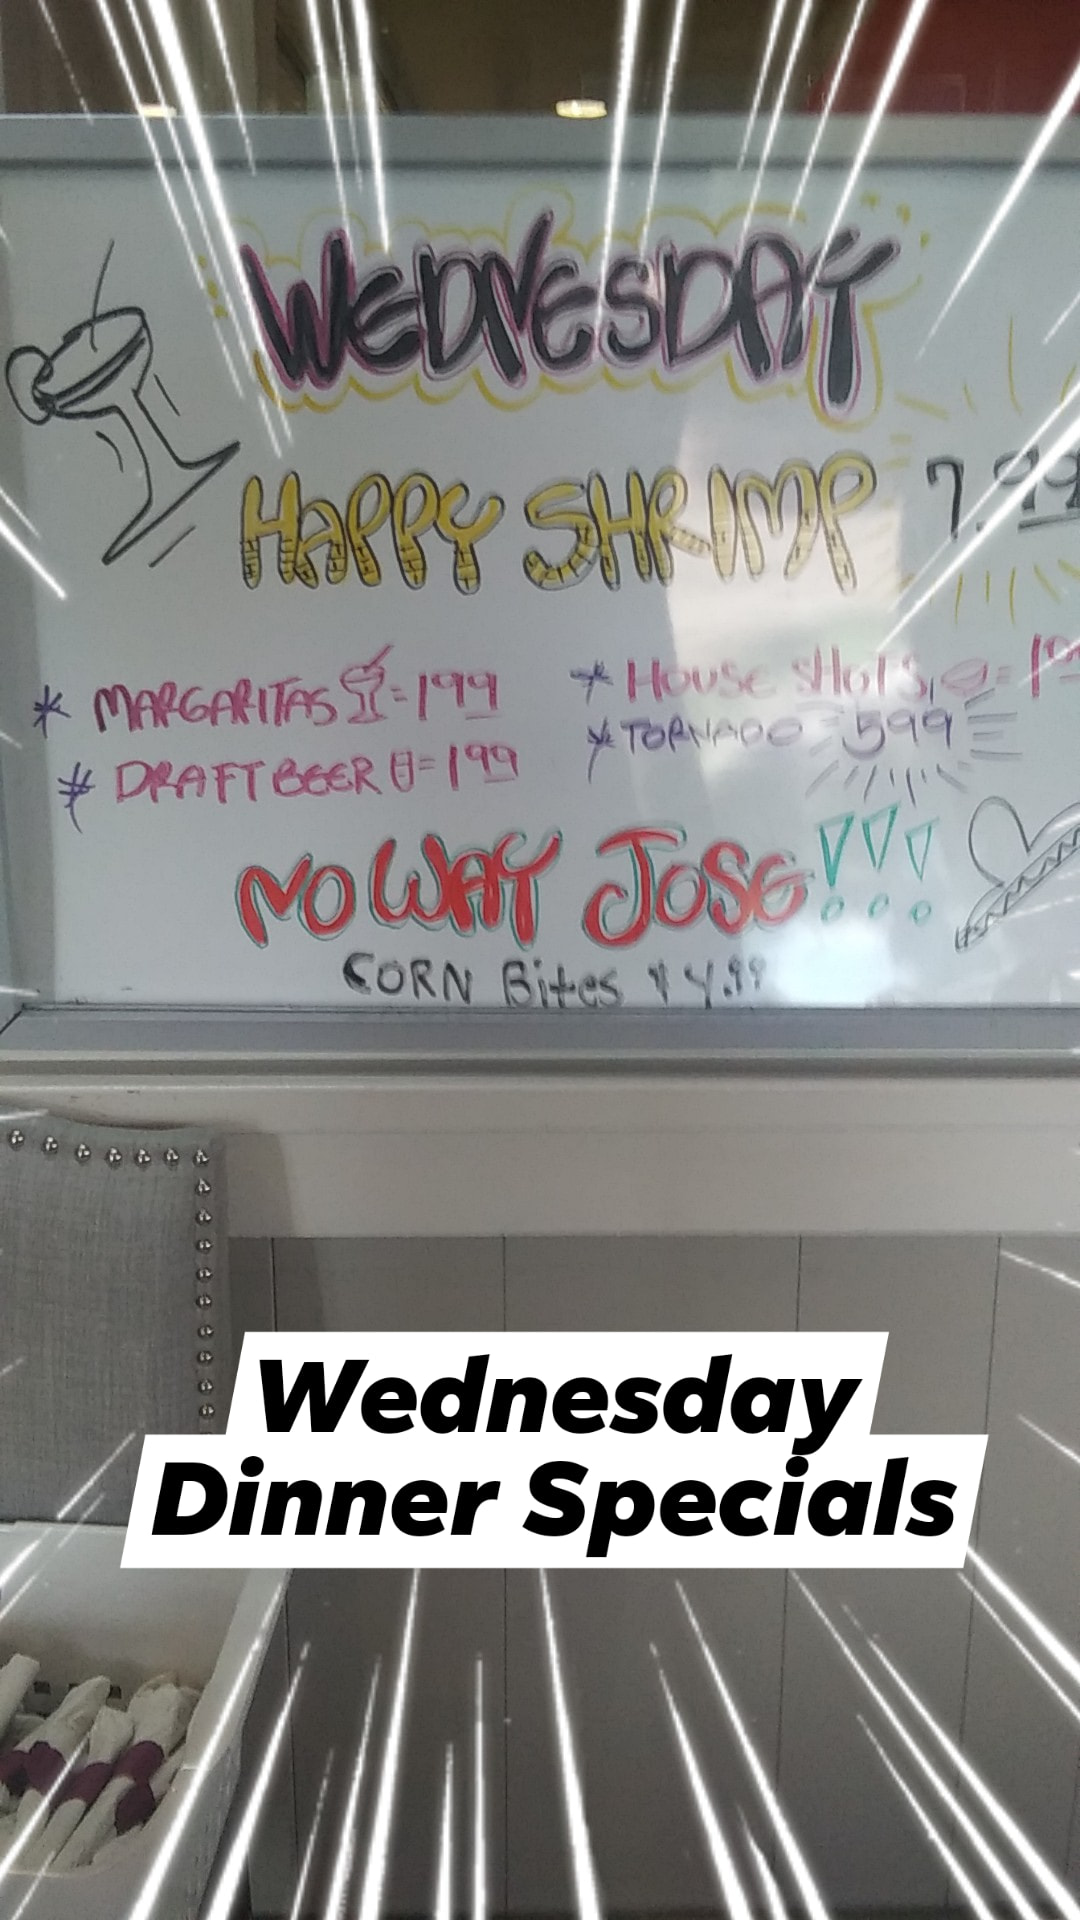 WEDNESDAY
HAPPY SHRIMP 7.99
* MARGARITAS = 199
* HOUSE SHOTS, = 1
* DRAFT BEER = 199
* TORNADO = 599
NO WAY JOSE!!!
CORN Bites $4.99
Wednesday
Dinner Specials